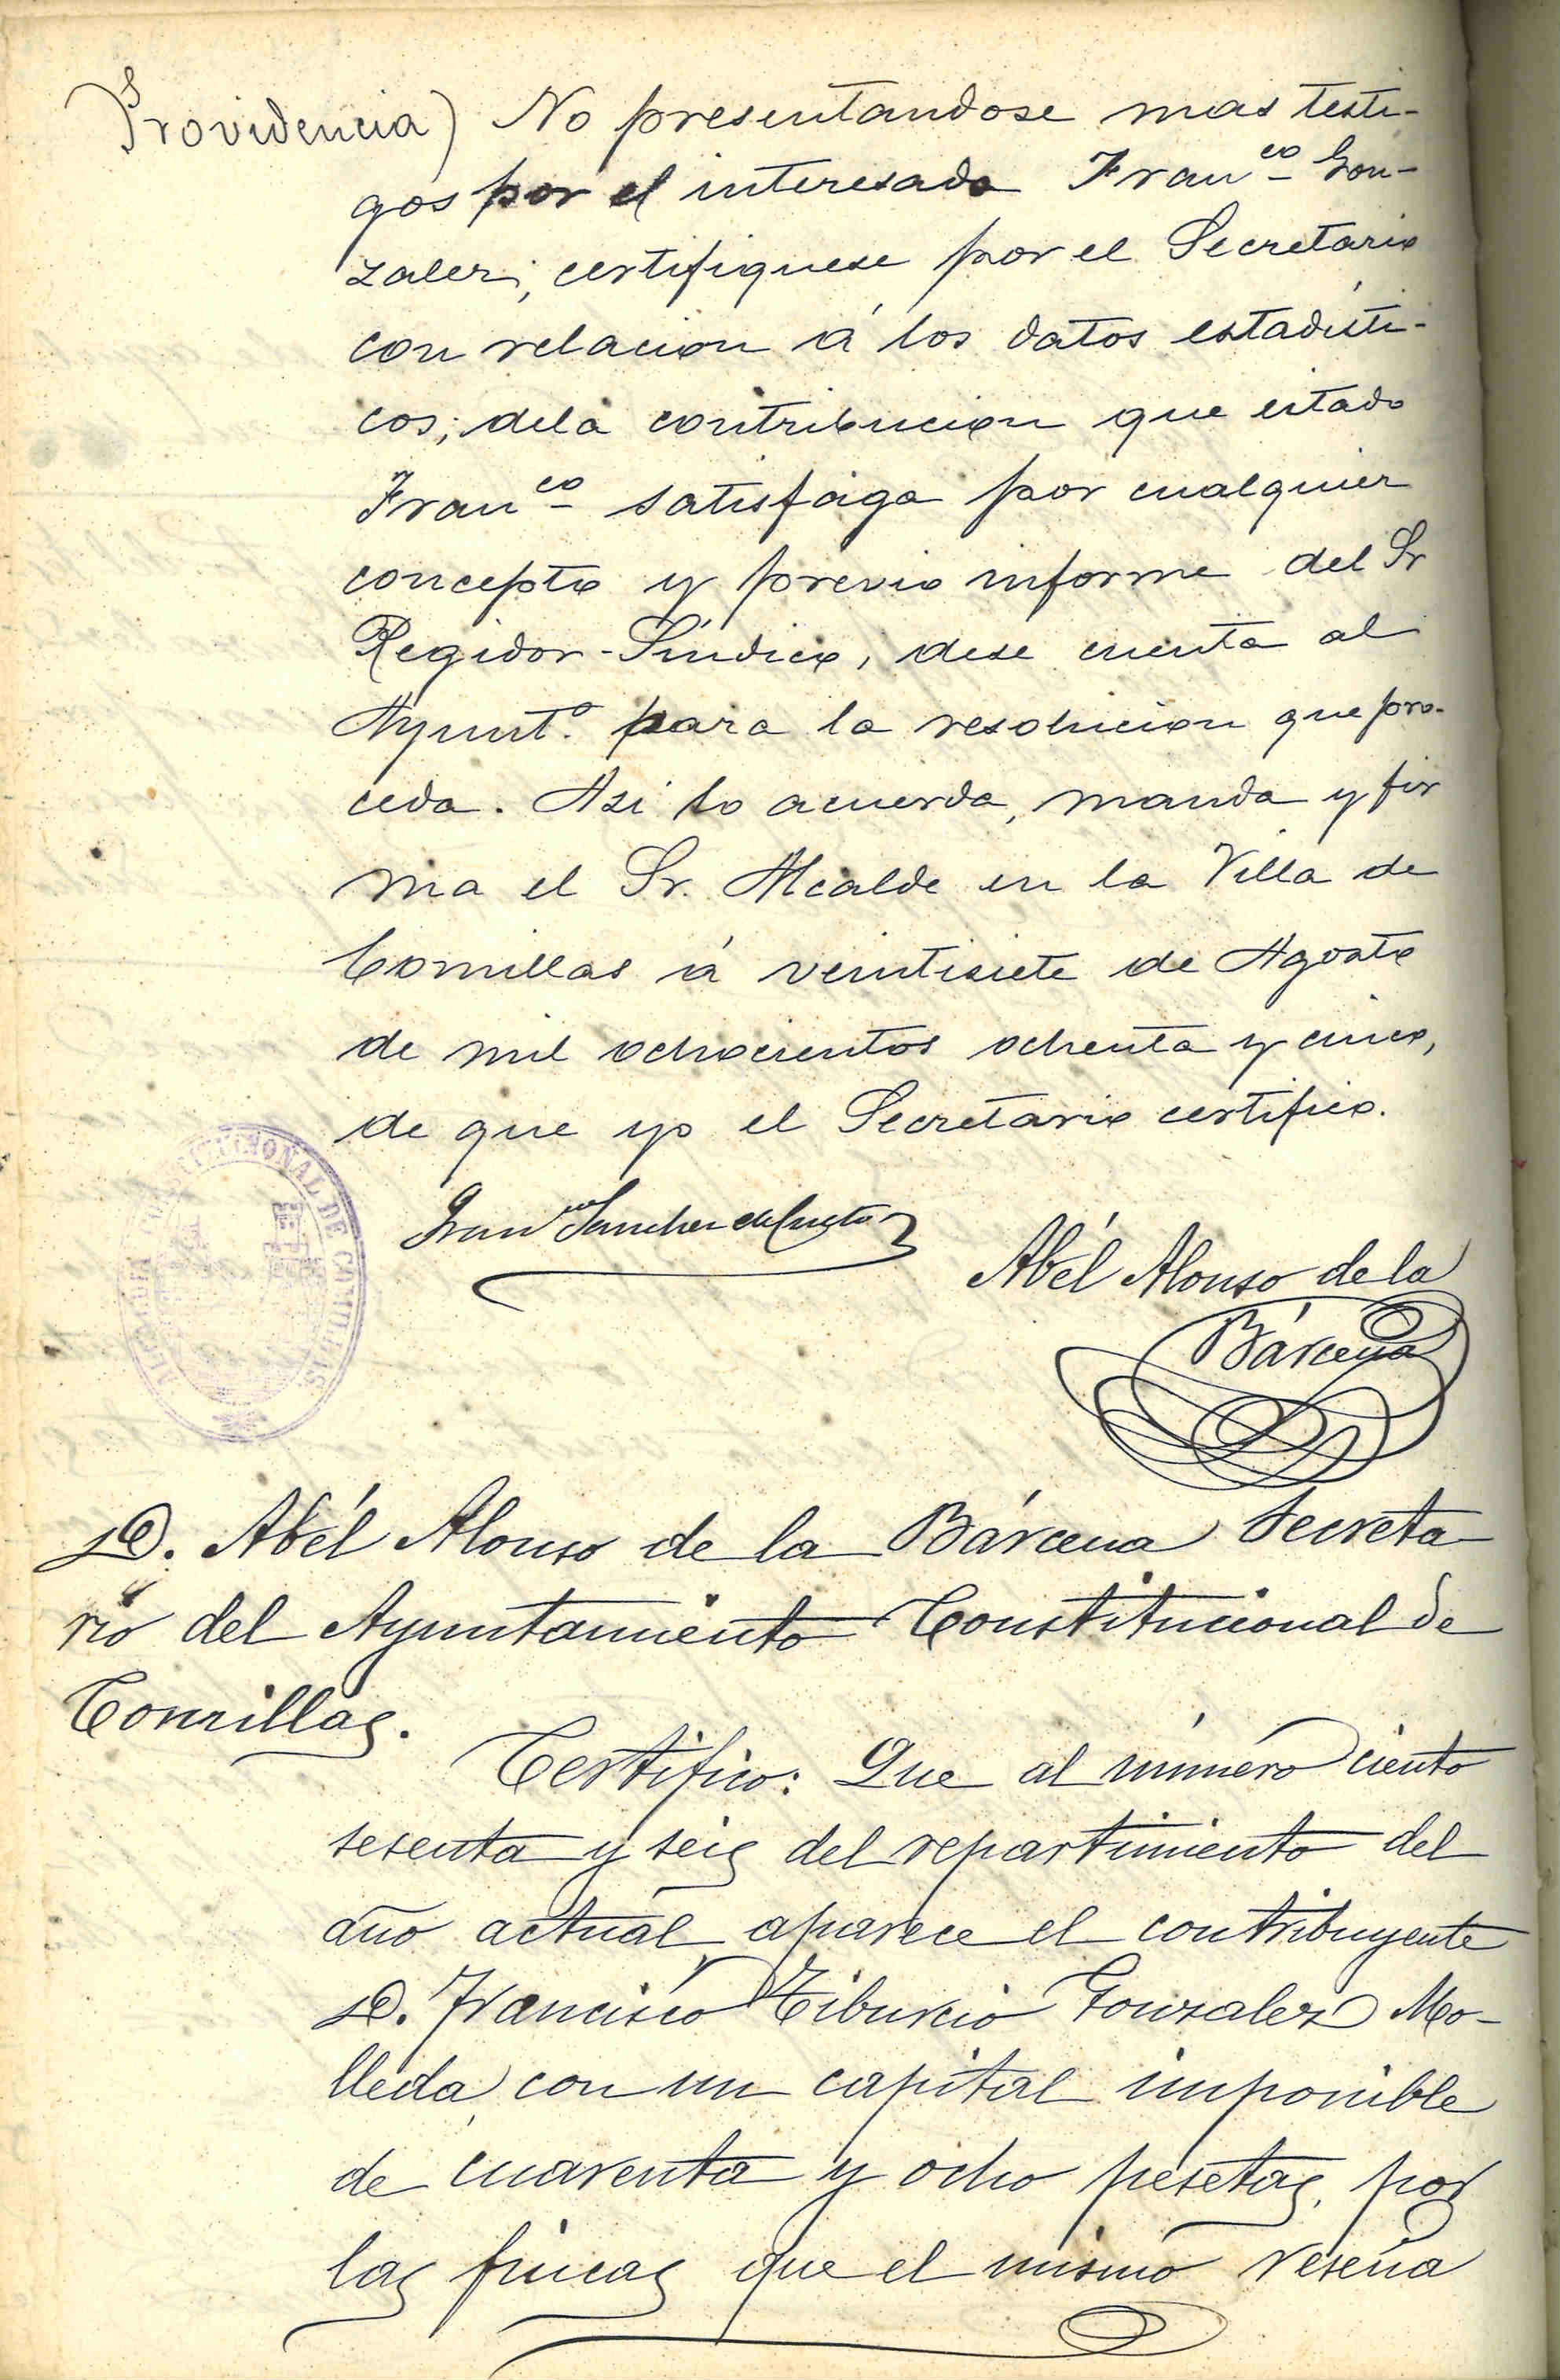 Providencia) No presentandose mas testi-
gos por el interesado Fran.co Gon-
zalez; certifiquese por el Secretario
con relacion á los datos estadisti-
cos; dela contribucion que citado
Fran.co satisfaga por cualquier
concepto y previo informe del Sr
Regidor-Síndico, dese cuenta al
Ayunt.o para la resolucion que pro-
ceda. Asi lo acuerda, manda y fir
ma el Sr. Alcalde en la Villa de
Comillas á veintisiete de Agosto
de mil ochocientos ochenta y cinco,
de que yo el Secretario certifico.
Fran.co Sanchez de Cueto
Abél Alonso de la
Bárcena
ALCALDIA CONSTITUCIONAL DE COMILLAS
D. Abél Alonso de la Bárcena Secreta-
rio del Ayuntamiento Constitucional de
Comillas.
Certifico: Que al número ciento
sesenta y seis del repartimiento del
año actual aparece el contribuyente
D. Francisco Tiburcio Gonzalez Mo-
lleda, con un capital imponible
de cuarenta y ocho pesetas, por
las fincas que el mismo reseña